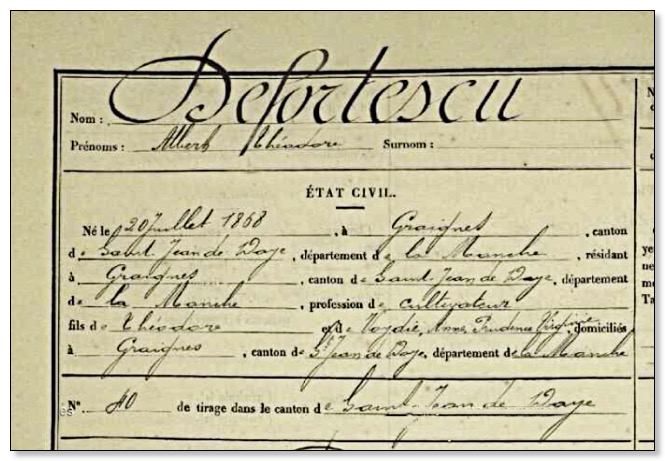 Nom : Defortescu
Prénoms : Albert Théodore Surnom :
ÉTAT CIVIL.
Né le 20 Juillet 1868, à Graignes, canton
de Saint Jean de Daye, département de la Manche, résidant
à Graignes, canton de Saint Jean de Daye, département
de la Manche, profession de cultivateur
fils de Théodore et de Voydie, Anne Prudence Virginie, domiciliés
à Graignes, canton de St Jean de Daye, département de la Manche
N° 40 de tirage dans le canton de Saint-Jean de Daye